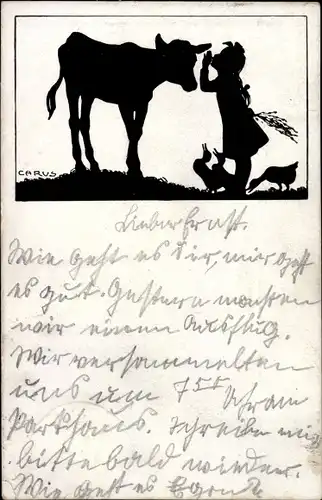 CARUS
Lieber Ernst.
Wie geht es Dir, mir geht
es gut. Gestern machten
wir einen Ausflug.
Wir versammelten
uns um 7 Uhr am
Parkhaus. Schreibe mir
bitte bald wieder.
Wie geht es